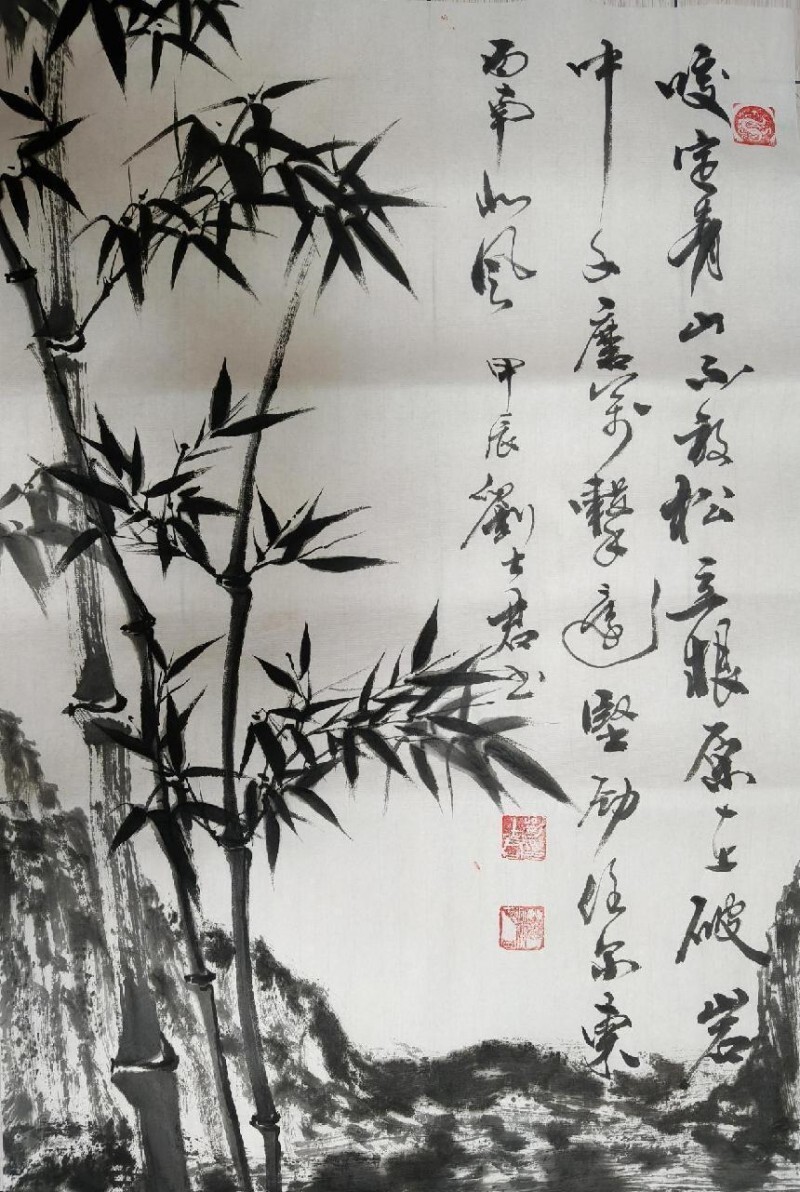 咬定青山不放松立根原在破岩
中千磨萬擊還堅劲任尔東
西南北风 甲辰 劉士君书